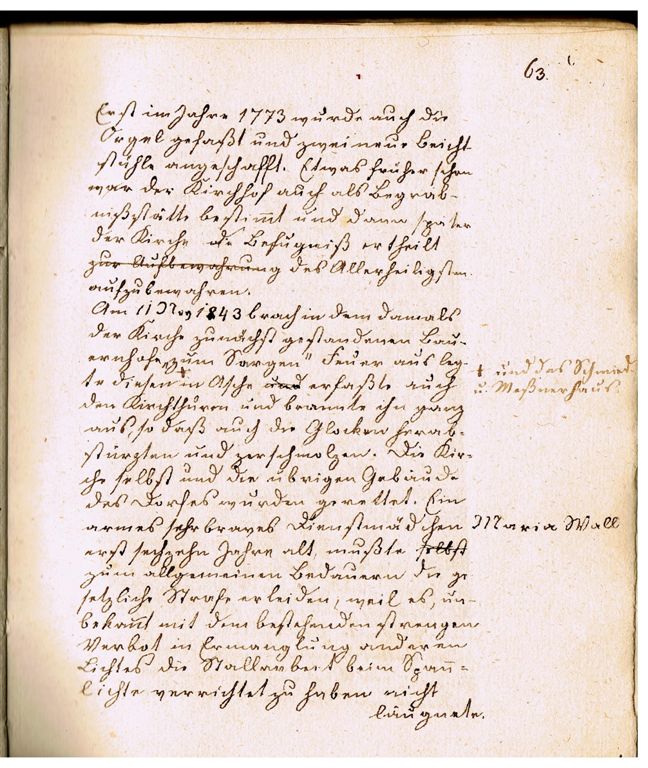 63.
Erst im Jahre 1773 wurde auch die
Orgel gefaßt und zwei neue Beicht
stühle angeschafft. Etwas früher schon
war der Kirchhof auch als Begräb-
nißstätte bestimt und dann später
der Kirche die Befugniß ertheilt
zur Aufbewahrung des Allerheiligsten
aufzubewahren.
Am 11 Nov 1843 brach in dem damals
der Kirche zunächst gestandenen Bau-
ernhofe „zum Sargen" Feuer aus leg-
te diesen ‡ in Asche und erfaßte auch
‡ und das Schmied
u. Meßnerhaus.
den Kirchthurm und brannte ihn ganz
aus, so daß auch die Glocken herab-
stürzten und zerschmolzen. Die Kir-
che selbst und die übrigen Gebäude
des Dorfes wurden gerettet. Ein
armes sehr braves Dienstmädchen Maria Wall
erst sechzehn Jahre alt, mußte selbst
zum allgemeinen Bedauern die ge
setzliche Strafe erleiden, weil es, un-
bekant mit dem bestehenden strengen
Verbot in Ermanglung anderen
Lichtes die Stallarbeit beim Span-
lichte verrichtet zu haben nicht
läugnete.